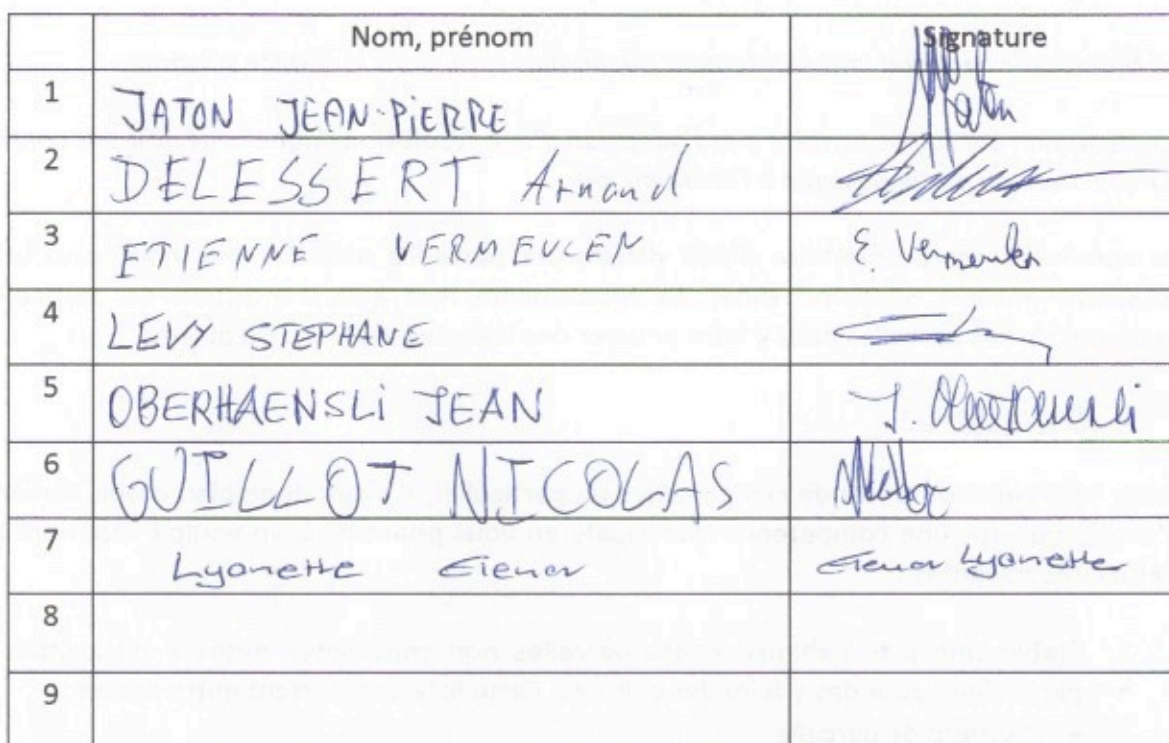 Nom, prénom Signature
1 JATON JEAN-PIERRE Jaton
2 DELESSERT Arnaud
3 ETIENNE VERMEULEN E. Vermeulen
4 LEVY STEPHANE
5 OBERHAENSLi JEAN J. Oberhaensli
6 GUILLOT NICOLAS
7 Lyonette Elenor Elenor Lyonette
8
9